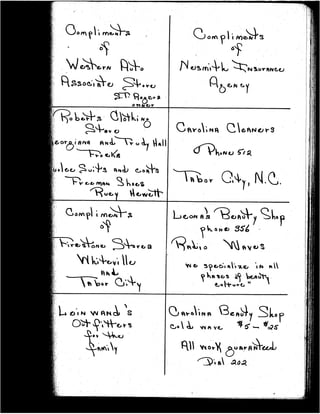 Compliments
of
Western Auto
Associate Store
owner
Compliments
of
Nesmith Insurance
Agency
Roberts Clothing
Store
Georgianna and Trudy Hall
Frocks
Suits and Coats
Freeman Shoes
Ruey Hewett
Carolina Cleaners
Phone 512
Tabor City, N.C.
Compliments
of
Firestone Stores
Whiteville
and
Tabor City
Leona's Beauty Shop
phone 356
Radio Waves
We specialize in all
phases of beauty
culture"
Leinwand's
Outfitters
for the
family
Carolina Beauty Shop
cold wave $5 - $25
All work guaranteed
Dial 202